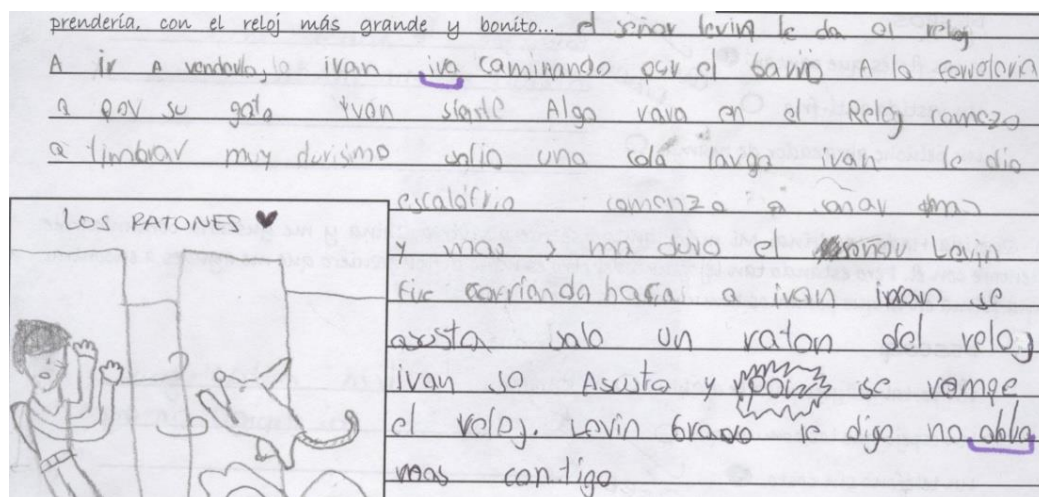 prendería, con el reloj más grande y bonito... el señor levin le da el reloj
A ir A venderlo, le ivan iva caminando por el barrio A la
a por su gato Ivan siente Algo raro en el Reloj comezo
a timbrar muy durisimo salio una cola larga ivan le dio
escalofrio comenzo a sonar mas
y mas y mas duro el señor Levin
fue corriendo hacia a ivan ivan se
asusta salo un raton del reloj
ivan se Asusta y pom se rompe
el reloj. Levin bravo le digo no ablo
mas contigo
LOS RATONES